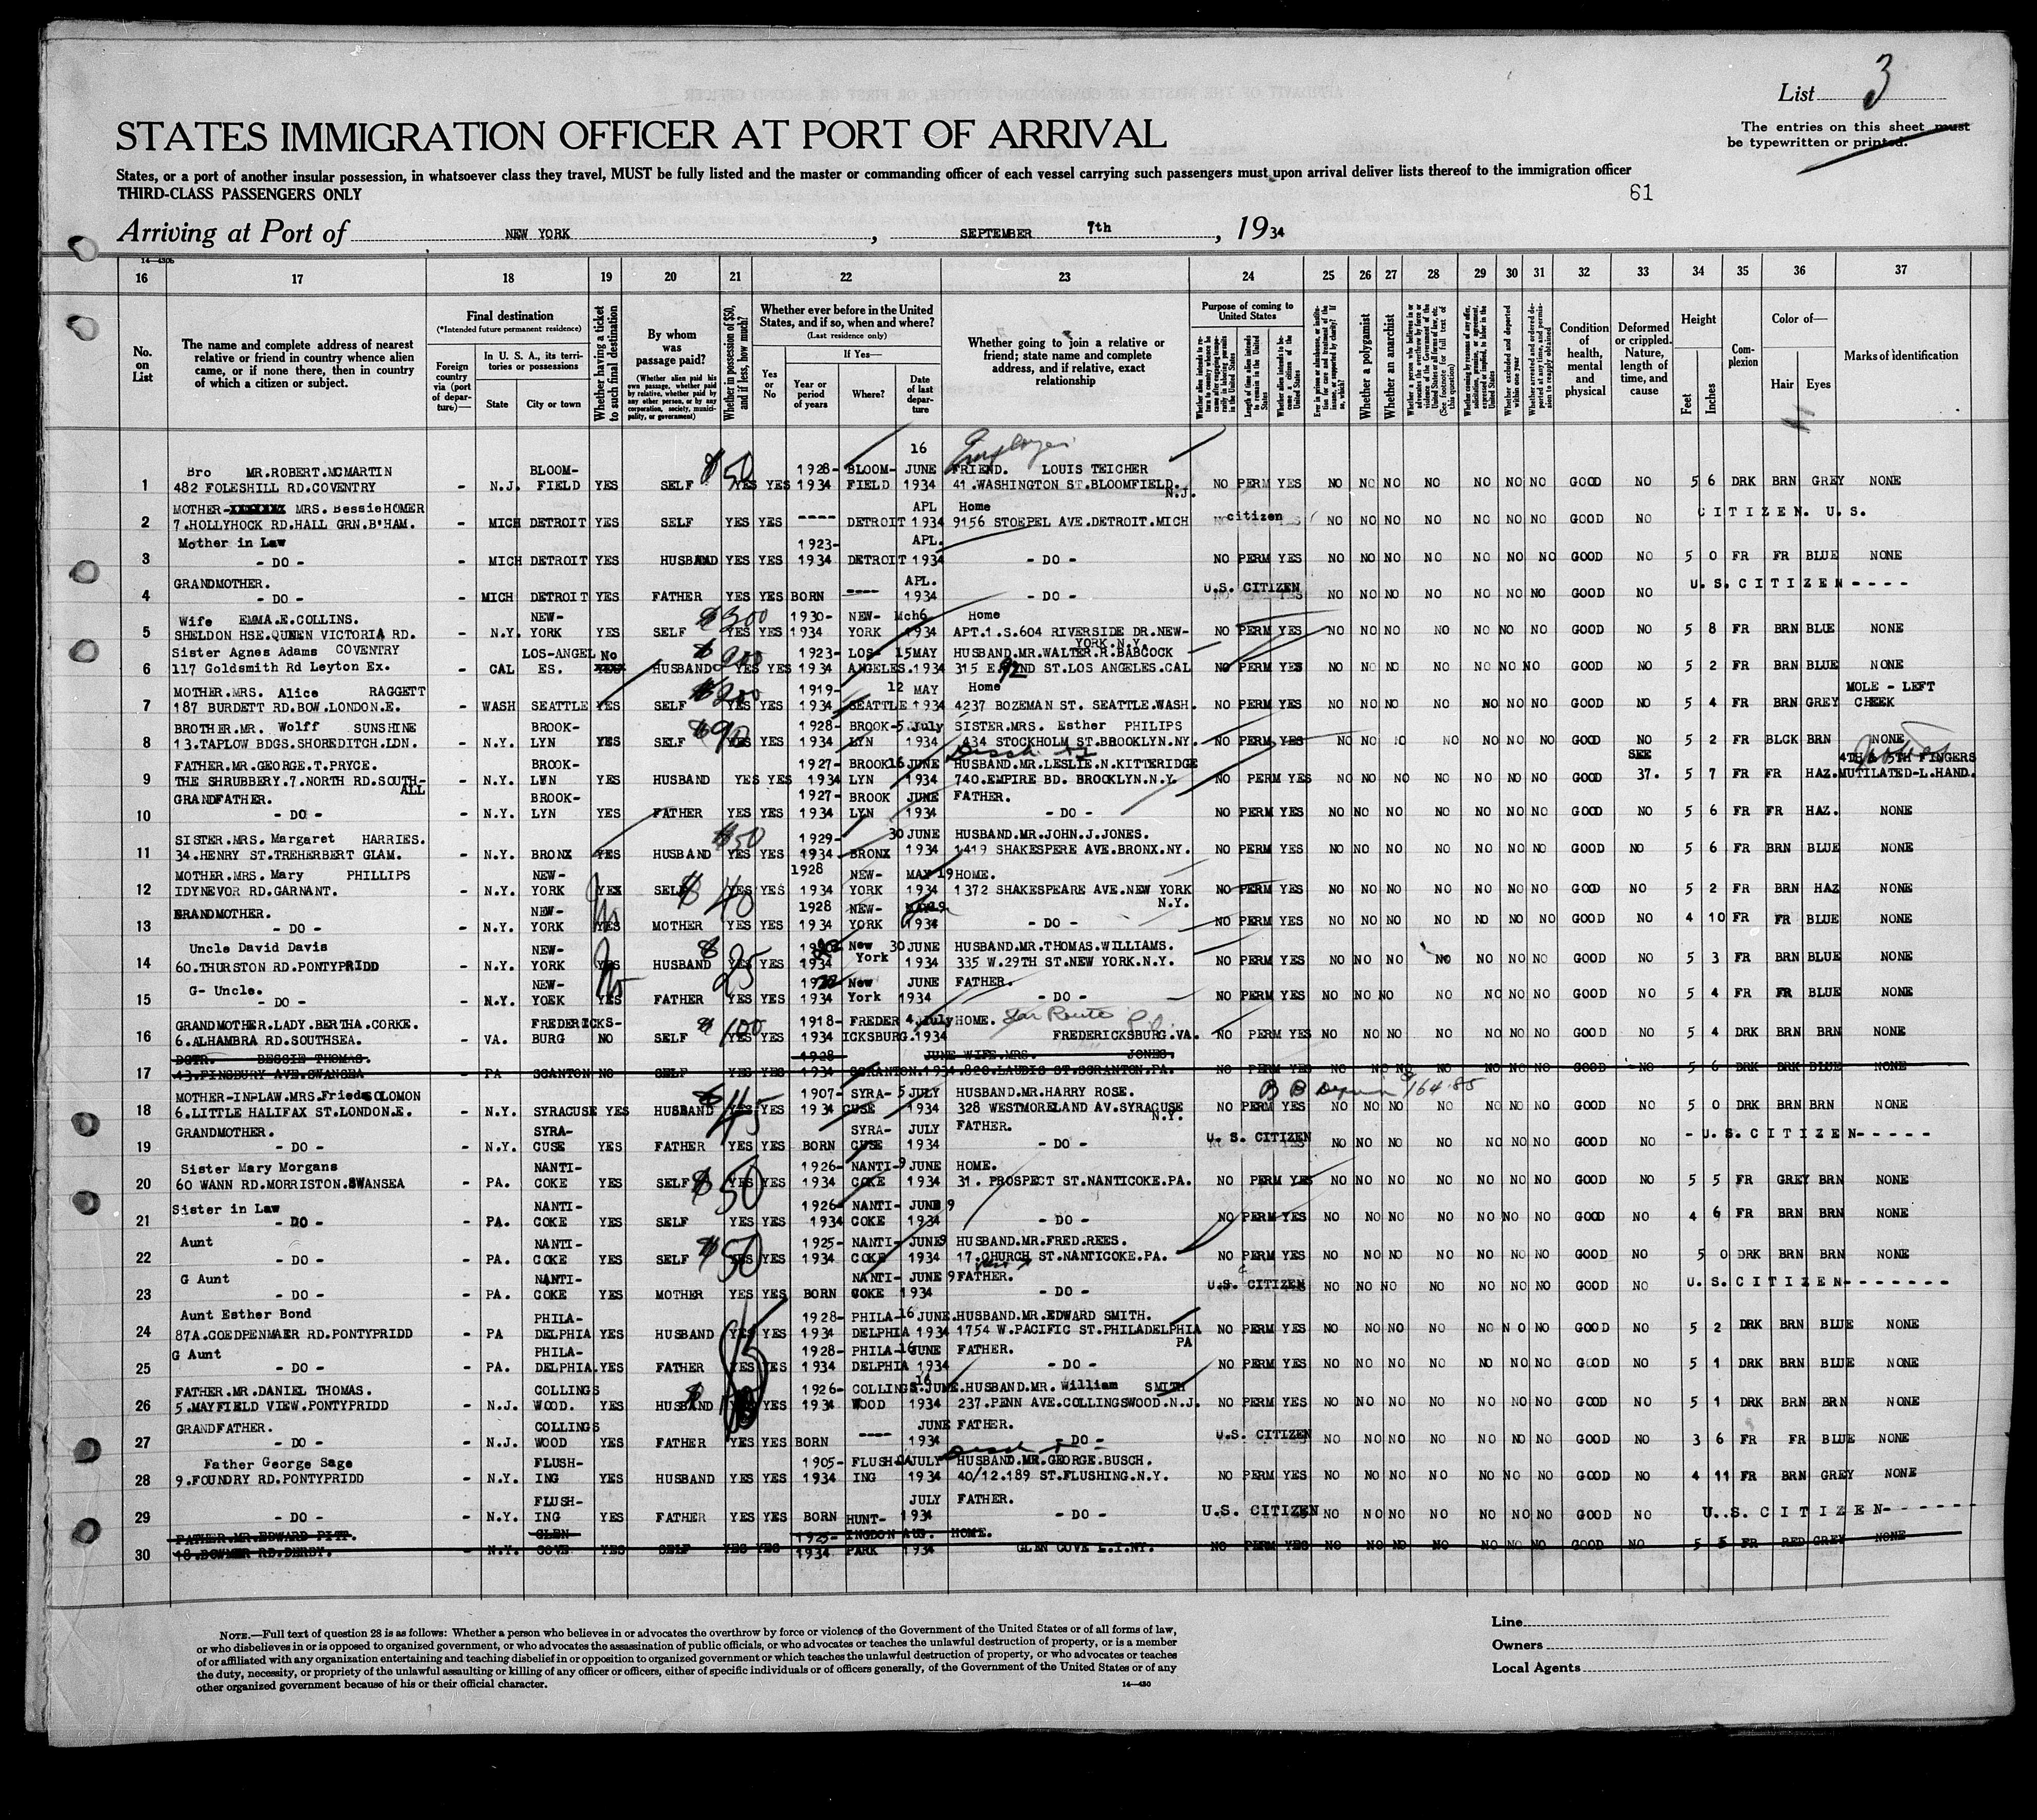 List 3
The entries on this sheet must
be typewritten or printed.
STATES IMMIGRATION OFFICER AT PORT OF ARRIVAL
States, or a port of another insular possession, in whatsoever class they travel, MUST be fully listed and the master or commanding officer of each vessel carrying such passengers must upon arrival deliver lists thereof to the immigration officer
THIRD-CLASS PASSENGERS ONLY
61
Arriving at Port of NEW YORK, SEPTEMBER 7th, 1934
14-430b
16 17 18 19 20 21 22 23 24 25 26 27 28 29 30 31 32 33 34 35 36 37
No. on List
The name and complete address of nearest relative or friend in country whence alien came, or if none there, then in country of which a citizen or subject.
Final destination
(*Intended future permanent residence)
Foreign country via (port of departure)—
In U. S. A., its territories or possessions
State
City or town
Whether having a ticket to such final destination
By whom was passage paid?
(Whether alien paid his own passage, whether paid by relative, whether paid by any other person, or by any corporation, society, municipality, or government)
Whether in possession of $50, and if less, how much?
Whether ever before in the United States, and if so, when and where?
(Last residence only)
Yes or No
If Yes—
Year or period of years
Where?
Date of last departure
Whether going to join a relative or friend; state name and complete address, and if relative, exact relationship
Purpose of coming to United States
Whether a polygamist
Whether an anarchist
Condition of health, mental and physical
Deformed or crippled. Nature, length of time, and cause
Height
Feet
Inches
Complexion
Color of—
Hair
Eyes
Marks of identification
16 Employer
Bro MR.ROBERT.MCMARTIN BLOOM- $50 1928- BLOOM- JUNE FRIEND. LOUIS TEICHER
1 482 FOLESHILL RD.COVENTRY - N.J. FIELD YES SELF YES YES 1934 FIELD 1934 41.WASHINGTON ST.BLOOMFIELD. N.J. NO PERM YES NO NO NO NO NO NO NO GOOD NO 5 6 DRK BRN GREY NONE
MOTHER- MRS. Bessie HOMER APL Home
2 7.HOLLYHOCK RD.HALL GRN.B'HAM. - MICH DETROIT YES SELF YES YES ---- DETROIT 1934 9156 STOEPEL AVE.DETROIT.MICH citizen NO NO NO NO NO NO NO GOOD NO CITIZEN. U.S.
Mother in Law 1923- APL.
3 - DO - - MICH DETROIT YES HUSBAND YES YES 1934 DETROIT 1934 - DO - NO PERM YES NO NO NO NO NO NO NO GOOD NO 5 0 FR FR BLUE NONE
GRANDMOTHER. APL.
4 - DO - - MICH DETROIT YES FATHER YES YES BORN ---- 1934 - DO - U.S. CITIZEN NO NO NO NO NO NO NO GOOD NO U.S.CITIZEN----
Wife EMMA.E.COLLINS. NEW- $300 1930- NEW- Mch6 Home
5 SHELDON HSE.QUEEN VICTORIA RD. COVENTRY - N.Y. YORK YES SELF YES YES 1934 YORK 1934 APT.1.S.604 RIVERSIDE DR.NEW-YORK.N.Y. NO PERM YES NO NO NO NO NO NO NO GOOD NO 5 8 FR BRN BLUE NONE
Sister Agnes Adams LOS-ANGEL No 1923- LOS- 15MAY HUSBAND.MR.WALTER.R.BABCOCK
6 117 Goldsmith Rd Leyton Ex. - CAL ES. HUSBAND YES YES 1934 ANGELES.1934 315 E 92ND ST.LOS ANGELES.CAL NO PERM YES NO NO NO NO NO NO NO GOOD NO 5 2 FR BRN BLUE NONE
MOTHER.MRS. Alice RAGGETT $200 1919- 12 MAY Home MOLE - LEFT
7 187 BURDETT RD.BOW.LONDON.E. - WASH SEATTLE YES SELF YES YES 1934 SEATTLE 1934 4237 BOZEMAN ST. SEATTLE.WASH. NO PERM YES NO NO NO NO NO NO NO GOOD NO 5 4 FR BRN GREY CHEEK
BROTHER.MR. Wolff SUNSHINE BROOK- $90 1928- BROOK- 5 July SISTER.MRS. Esther PHILIPS
8 13.TAPLOW BDGS.SHOREDITCH.LDN. - N.Y. LYN YES SELF YES YES 1934 LYN 1934 1434 STOCKHOLM ST.BROOKLYN.NY. NO PERM YES NO NO NO NO NO NO NO GOOD NO 5 2 FR BLCK BRN NONE
FATHER.MR.GEORGE.T.PRYCE. BROOK- 1927- BROOK 16 JUNE HUSBAND.MR.LESLIE.N.KITTERIDGE SEE 4TH & 5TH FINGERS
9 THE SHRUBBERY.7.NORTH RD.SOUTH-ALL - N.Y. LYN YES HUSBAND YES YES 1934 LYN 1934 740.EMPIRE BD. BROOKLYN.N.Y. NO PERM YES NO NO NO NO NO NO NO GOOD 37. 5 7 FR FR HAZ. MUTILATED-L.HAND.
GRANDFATHER. BROOK- 1927- BROOK JUNE FATHER.
10 - DO - - N.Y. LYN YES FATHER YES YES 1934 LYN 1934 - DO - NO PERM YES NO NO NO NO NO NO NO GOOD NO 5 6 FR FR HAZ. NONE
SISTER.MRS. Margaret HARRIES. $50 1929- 30 JUNE HUSBAND.MR.JOHN.J.JONES.
11 34.HENRY ST.TREHERBERT GLAM. - N.Y. BRONX YES HUSBAND YES YES 1934 BRONX 1934 1419 SHAKESPERE AVE.BRONX.NY. NO PERM YES NO NO NO NO NO NO NO GOOD NO 5 6 FR BRN BLUE NONE
MOTHER.MRS. Mary PHILLIPS NEW- 1928 NEW- MAY 19 HOME.
12 IDYNEVOR RD.GARNANT. - N.Y. YORK YES SELF $40 YES YES 1934 YORK 1934 1372 SHAKESPEARE AVE.NEW YORK N.Y. NO PERM YES NO NO NO NO NO NO NO GOOD NO 5 2 FR BRN HAZ NONE
GRANDMOTHER. NEW- No 1928 NEW- MAY19
13 - DO - - N.Y. YORK YES MOTHER YES YES 1934 YORK 1934 - DO - NO PERM YES NO NO NO NO NO NO NO GOOD NO 4 10 FR FR BLUE NONE
Uncle David Davis NEW- New 30 JUNE HUSBAND.MR.THOMAS.WILLIAMS.
14 60.THURSTON RD.PONTYPRIDD - N.Y. YORK YES HUSBAND $25 YES YES 1934 York 1934 335 W.29TH ST.NEW YORK.N.Y. NO PERM YES NO NO NO NO NO NO NO GOOD NO 5 3 FR BRN BLUE NONE
G- Uncle. NEW- No New JUNE FATHER.
15 - DO - - N.Y. YORK YES FATHER YES YES 1934 York 1934 - DO - NO PERM YES NO NO NO NO NO NO NO GOOD NO 5 4 FR FR BLUE NONE
GRANDMOTHER.LADY.BERTHA.CORKE. FREDERICKS- $100 1918- FREDER 4 July HOME. Star Route
16 6.ALHAMBRA RD.SOUTHSEA. - VA. BURG NO SELF YES YES 1934 ICKSBURG.1934 FREDERICKSBURG.VA. NO PERM YES NO NO NO NO NO NO NO GOOD NO 5 4 DRK BRN BRN NONE
DGTR. BESSIE THOMAS. 1928 JUNE WIFE.MRS. JONES.
17 43.FINSBURY AVE.SWANSEA PA SCANTON NO SELF YES YES 1934 SCRANTON.1934.820.LAUDIS ST.SCRANTON.PA. NO PERM YES NO NO NO NO NO NO NO GOOD NO 5 6 DRK DRK BLUE NONE
MOTHER-INLAW.MRS.Frieda SOLOMON $45 1907- SYRA- 5 JULY HUSBAND.MR.HARRY ROSE.
18 6.LITTLE HALIFAX ST.LONDON.E. - N.Y. SYRACUSE YES HUSBAND YES YES 1934 CUSE 1934 328 WESTMORELAND AV.SYRACUSE N.Y. NO PERM YES NO NO NO NO NO NO NO GOOD NO 5 0 DRK BRN BRN NONE
GRANDMOTHER. SYRA- SYRA- JULY FATHER.
19 - DO - - N.Y. CUSE YES FATHER YES YES BORN CUSE 1934 - DO - U. S. CITIZEN NO NO NO NO NO NO NO GOOD NO -U.S.CITIZEN-----
Sister Mary Morgans NANTI- 1926- NANTI- 9 JUNE HOME.
20 60 WANN RD.MORRISTON.SWANSEA - PA. COKE YES SELF $50 YES YES 1934 COKE 1934 31. PROSPECT ST.NANTICOKE.PA. NO PERM YES NO NO NO NO NO NO NO GOOD NO 5 5 FR GREY BRN NONE
Sister in Law NANTI- 1926- NANTI- JUNE 9
21 - DO - - PA. COKE YES SELF YES YES 1934 COKE 1934 - DO - NO PERM YES NO NO NO NO NO NO NO GOOD NO 4 6 FR BRN BRN NONE
Aunt NANTI- 1925- NANTI- JUNE9 HUSBAND.MR.FRED.REES.
22 - DO - - PA. COKE YES SELF $50 YES YES 1934 COKE 1934 17.CHURCH ST.NANTICOKE.PA. NO PERM YES NO NO NO NO NO NO NO GOOD NO 5 0 DRK BRN BRN NONE
G Aunt NANTI- NANTI- JUNE 9 FATHER.
23 - DO - - PA. COKE YES MOTHER YES YES BORN COKE 1934 - DO - U.S. CITIZEN NO NO NO NO NO NO NO GOOD NO U.S.CITIZEN--------
Aunt Esther Bond PHILA- 1928- PHILA- 16 JUNE.HUSBAND.MR.EDWARD SMITH.
24 87A.COEDPENMAER RD.PONTYPRIDD - PA DELPHIA YES HUSBAND YES YES 1934 DELPHIA 1934 1754 W.PACIFIC ST.PHILADELPHIA PA NO PERM YES NO NO NO NO NO NO NO GOOD NO 5 2 DRK BRN BLUE NONE
G Aunt PHILA- 1928- PHILA- 16 JUNE FATHER.
25 - DO - - PA. DELPHIA.YES FATHER YES YES 1934 DELPHIA 1934 - DO - NO PERM YES NO NO NO NO NO NO NO GOOD NO 5 1 DRK BRN BLUE NONE
FATHER.MR.DANIEL THOMAS. COLLINGS 1926- COLLINGS. 16 JUNE.HUSBAND.MR. William SMITH
26 5.MAYFIELD VIEW.PONTYPRIDD - N.J. WOOD. YES HUSBAND YES 1934 WOOD 1934 237.PENN AVE.COLLINGSWOOD.N.J. NO PERM YES NO NO NO NO NO NO NO GOOD NO 5 1 DRK BRN BRN NONE
GRANDFATHER. COLLINGS JUNE FATHER.
27 - DO - - N.J. WOOD YES FATHER YES YES BORN ---- 1934 - DO - U.S. CITIZEN NO NO NO NO NO NO NO GOOD NO 3 6 FR FR BLUE NONE
Father George Sage FLUSH- 1905- FLUSH- JULY HUSBAND.MR.GEORGE.BUSCH.
28 9.FOUNDRY RD.PONTYPRIDD - N.Y. ING YES HUSBAND YES YES 1934 ING 1934 40/12.189 ST.FLUSHING.N.Y. NO PERM YES NO NO NO NO NO NO NO GOOD NO 4 11 FR BRN GREY NONE
FLUSH- JULY FATHER.
29 - DO - - N.Y. ING YES FATHER YES YES BORN HUNT- 1934 - DO - U.S. CITIZEN NO NO NO NO NO NO NO GOOD NO U.S. CITIZEN-------
FATHER.MR.EDWARD PITT. GLEN 1925- INGDON AUG. HOME.
30 18.BOWMER RD.DERBY. N.Y. COVE YES SELF YES YES 1934 PARK 1934 GLEN COVE L.I.NY. NO PERM YES NO NO NO NO NO NO NO GOOD NO 5 5 FR RED GREY NONE
NOTE.—Full text of question 28 is as follows: Whether a person who believes in or advocates the overthrow by force or violence of the Government of the United States or of all forms of law,
or who disbelieves in or is opposed to organized government, or who advocates the assassination of public officials, or who advocates or teaches the unlawful destruction of property, or is a member
of or affiliated with any organization entertaining and teaching disbelief in or opposition to organized government or which teaches the unlawful destruction of property, or who advocates or teaches
the duty, necessity, or propriety of the unlawful assaulting or killing of any officer or officers, either of specific individuals or of officers generally, of the Government of the United States or of any
other organized government because of his or their official character.
14-430
Line
Owners
Local Agents